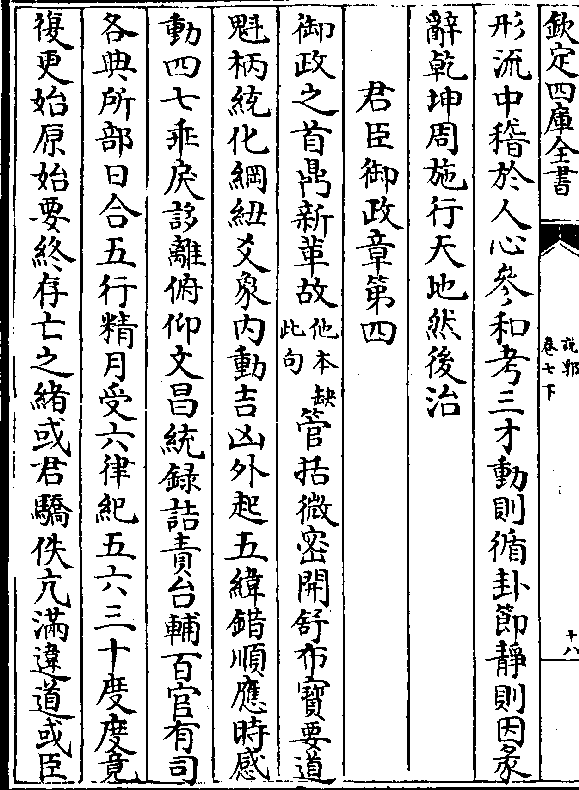 欽定四庫全書
說郛
卷七下
十八
形流中稽於人心參和考三才動則循卦節靜則因彖
辭乾坤周施行天地然後治
君臣御政章第四
御政之首鼎新革故他本缺此句管括微密開舒布寶要道
魁柄統化綱紐爻象內動吉凶外起五緯錯順應時感
動四七乖戾誃離俯仰文昌統録詰責台輔百官有司
各典所部日合五行精月受六律紀五六三十度度竟
復更始原始要終存亡之緒或君驕佚亢滿違道或臣